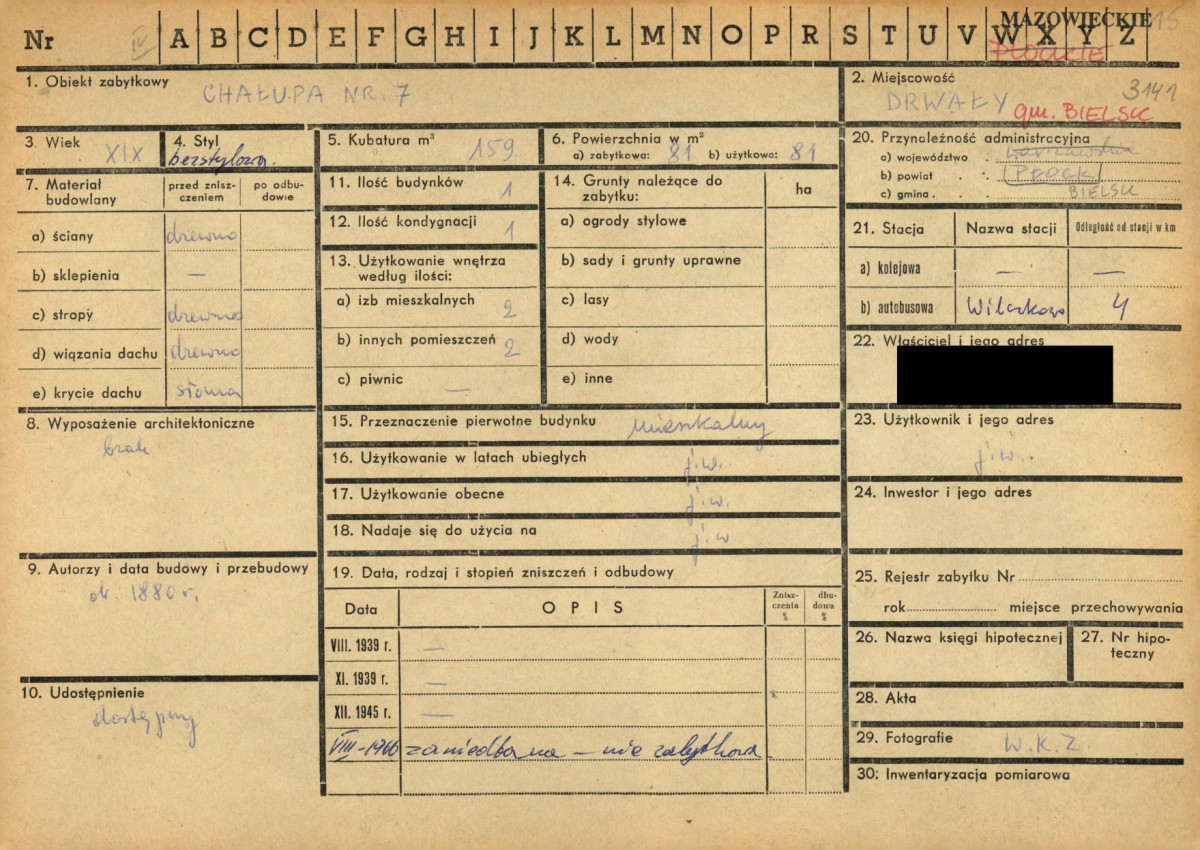 MAZOWIECKIE 15
Nr IV A B C D E F G H I J K L M N O P R S T U V W X Y Z
PŁOCKIE
1. Obiekt zabytkowy
CHAŁUPA NR. 7
2. Miejscowość
3141
DRWAŁY gm. BIELSK
3. Wiek XIX
4. Styl
bezstylowa
5. Kubatura m³ 159
6. Powierzchnia w m²
a) zabytkowa: 81 b) użytkowa: 81
20. Przynależność administracyjna
a) województwo . warszawskie
b) powiat . . PŁOCK
c) gmina . . . BIELSK
7. Materiał budowlany
przed znisz-
czeniem
po odbu-
dowie
a) ściany drewno
b) sklepienia —
c) stropy drewno
d) wiązania dachu drewno
e) krycie dachu słoma
11. Ilość budynków 1
12. Ilość kondygnacji 1
13. Użytkowanie wnętrza
według ilości:
a) izb mieszkalnych 2
b) innych pomieszczeń 2
c) piwnic —
14. Grunty należące do
zabytku:
ha
a) ogrody stylowe
b) sady i grunty uprawne
c) lasy
d) wody
e) inne
21. Stacja Nazwa stacji Odległość od stacji w km
a) kolejowa — —
b) autobusowa 4
22. Właściciel i jego adres
8. Wyposażenie architektoniczne
brak
15. Przeznaczenie pierwotne budynku mieszkalny
16. Użytkowanie w latach ubiegłych j.w.
17. Użytkowanie obecne j.w.
18. Nadaje się do użycia na j.w.
23. Użytkownik i jego adres
j.w.
24. Inwestor i jego adres
9. Autorzy i data budowy i przebudowy
ok. 1880 r.
10. Udostępnienie
dostępny
19. Data, rodzaj i stopień zniszczeń i odbudowy
Data OPIS
Znisz-
czenia
%
dbu-
dowa
%
VIII. 1939 r. —
XI. 1939 r. —
XII. 1945 r. —
VIII-1966 zaniedbana — nie zabytkowa
25. Rejestr zabytku Nr
rok miejsce przechowywania
26. Nazwa księgi hipotecznej
27. Nr hipo-
teczny
28. Akta
29. Fotografie W.K.Z.
30. Inwentaryzacja pomiarowa